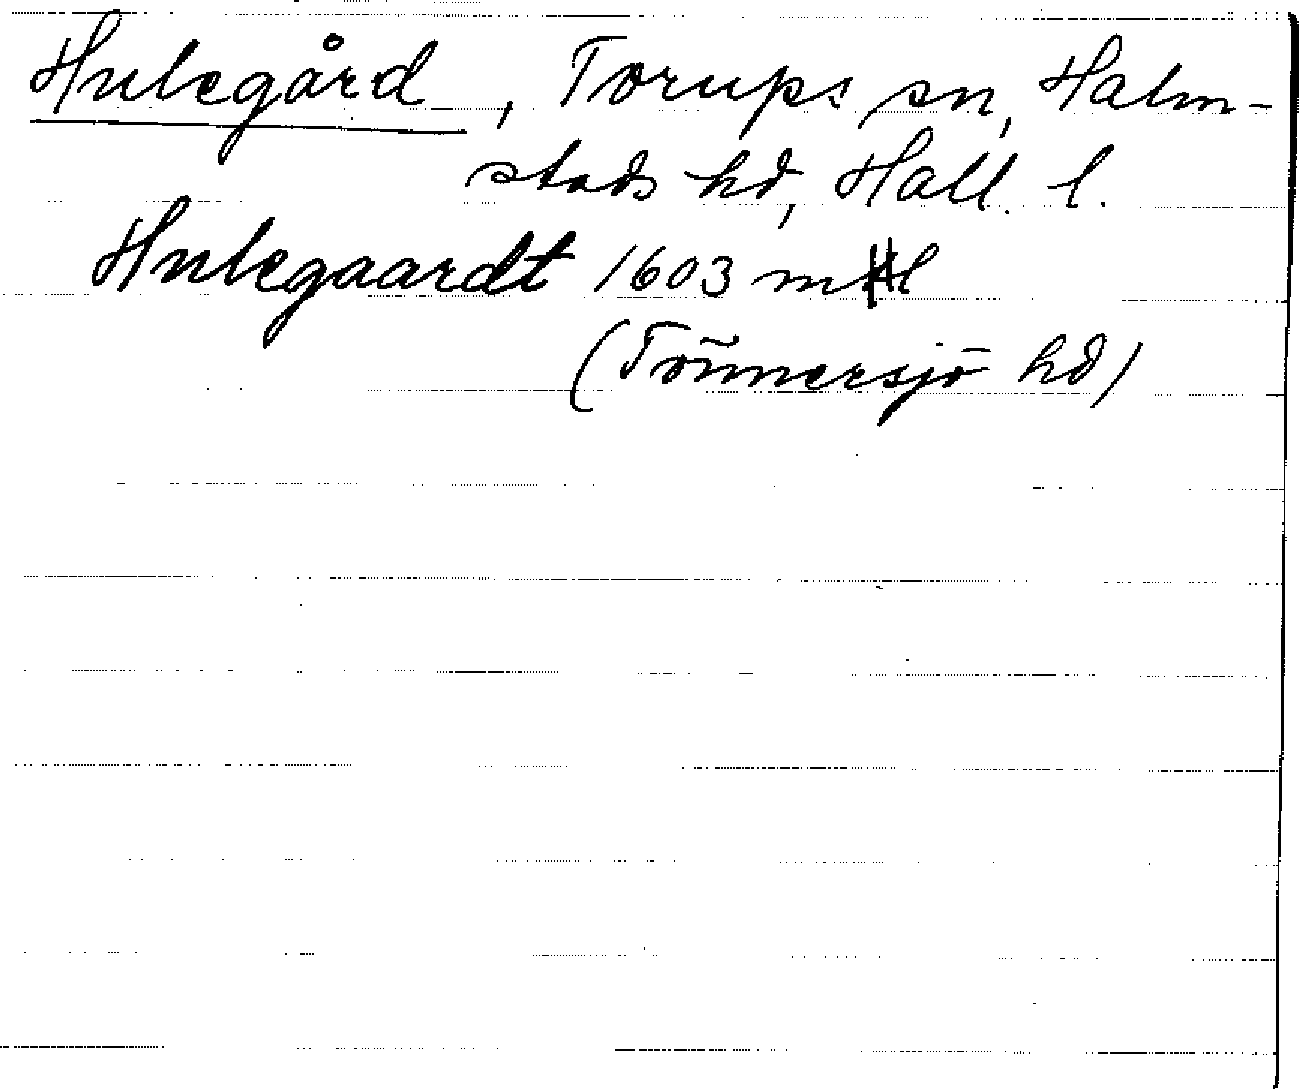 Hulegård, Torups sn, Halm-
stads hd, Hall. l.
Hulegaardt 1603 mtl
(Tönnersjö hd)